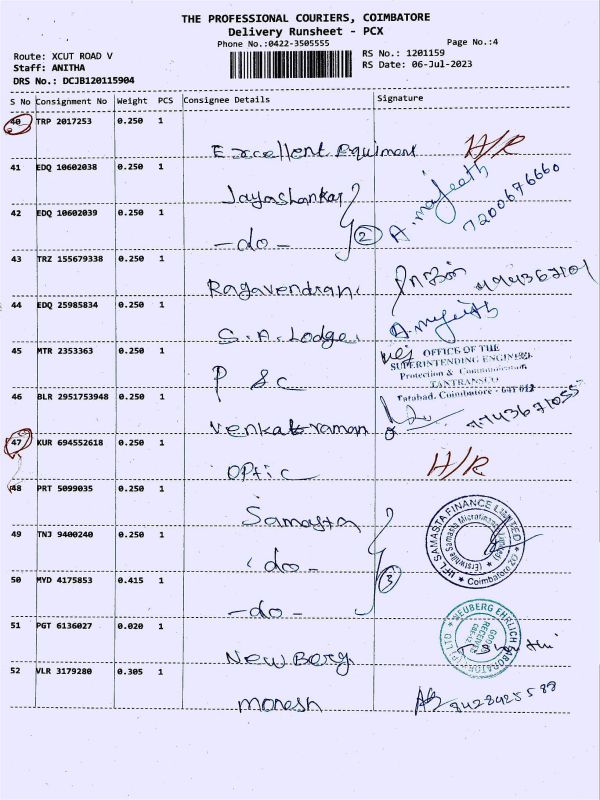 THE PROFESSIONAL COURIERS, COIMBATORE
Delivery Runsheet - PCX
Phone No.:0422-3505555
Page No.:4
Route: XCUT ROAD V
RS No.: 1201159
Staff: ANITHA
RS Date: 06-Jul-2023
DRS No.: DCJB120115904
S No Consignment No Weight PCS Consignee Details Signature
40 TRP 2017253 0.250 1
Excellent Equiment H/R
41 EDQ 10602038 0.250 1
Jayashankar A. majeeth
7200676660
42 EDQ 10602039 0.250 1
-do- 2
43 TRZ 155679338 0.250 1
Ragavendran
44 EDQ 25985834 0.250 1
S. A. Lodge A. majeeth
45 MTR 2353363 0.250 1
OFFICE OF THE
SUPERINTENDING ENGINEER
Protection & Communication
TANTRANSCO
Tatabad, Coimbatore - 641 012
P & C
46 BLR 2951753948 0.250 1
Venkatraman
47 KUR 694552618 0.250 1
Optic H/R
48 PRT 5099035 0.250 1
Samasta
49 TNJ 9400240 0.250 1
IIFL SAMASTA FINANCE LIMITED
Coimbatore
-do-
50 MYD 4175853 0.415 1
3
-do-
51 PGT 6136027 0.020 1
NEUBERG EHRLICH LABORATORY (P) LTD
Newberg
52 VLR 3179280 0.305 1
moresh